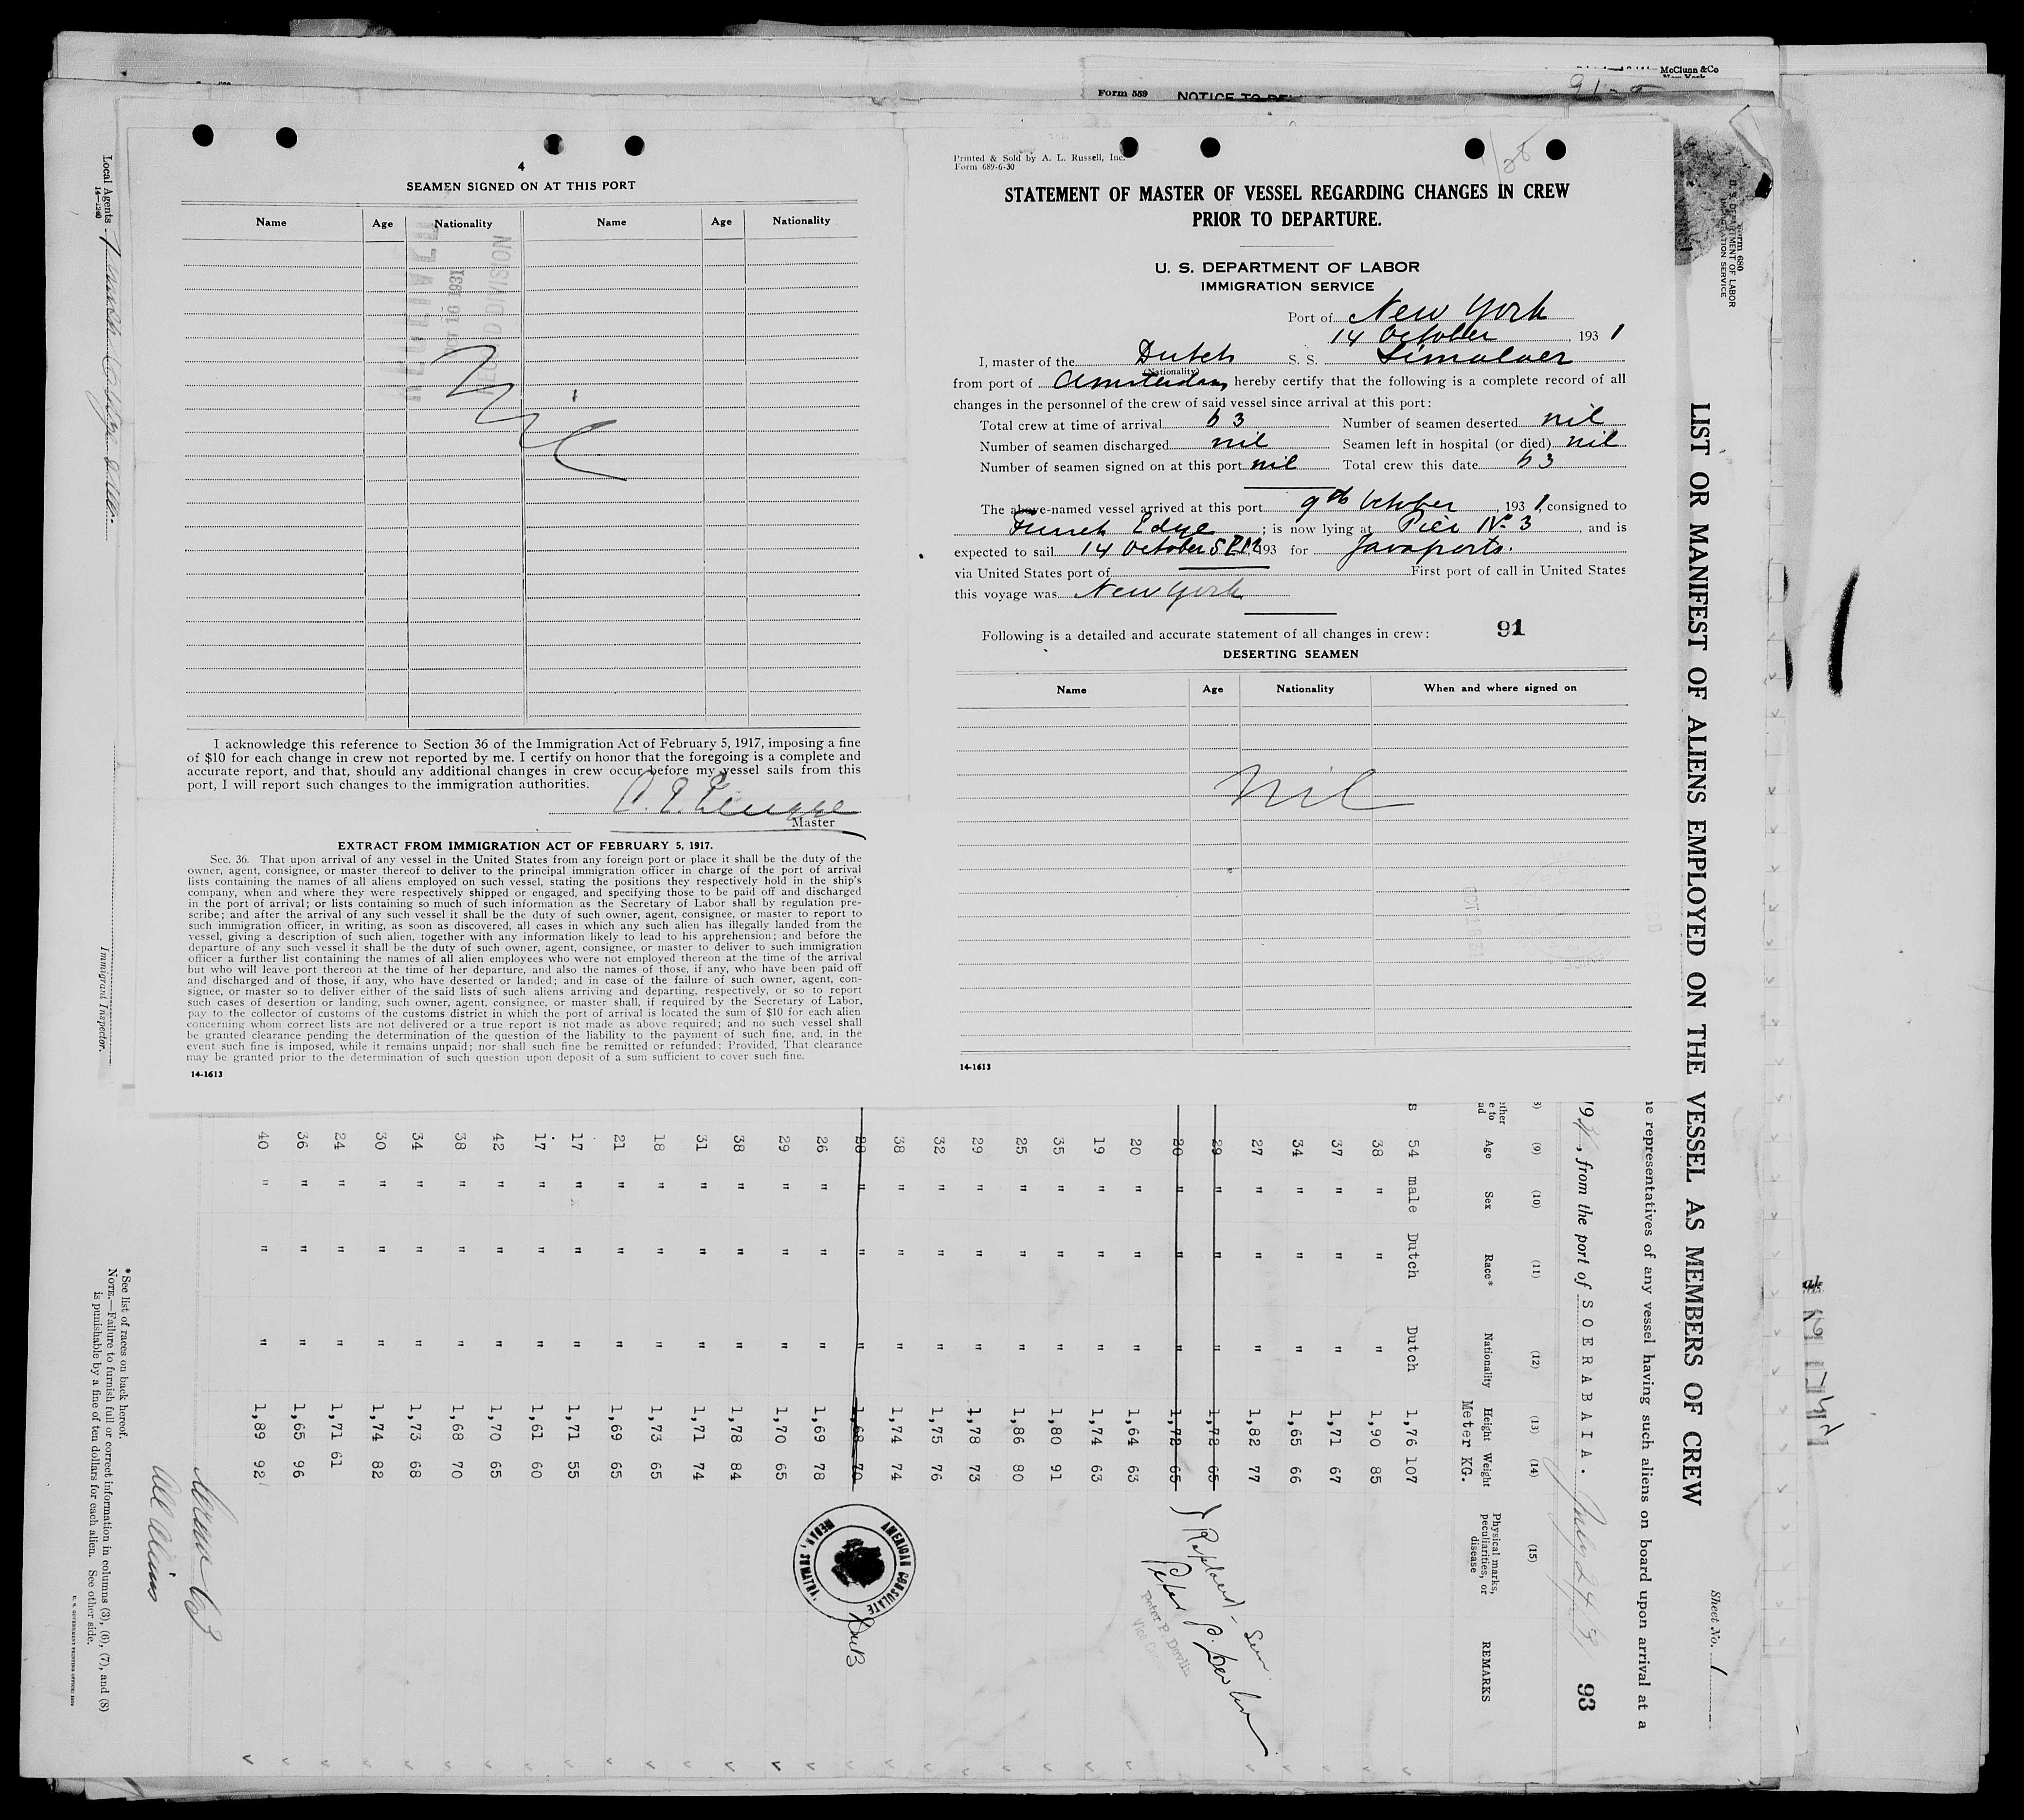 McClunn & Co
New York
Form 559 NOTICE TO DE
91-
4
SEAMEN SIGNED ON AT THIS PORT
Name Age Nationality Name Age Nationality
OCT 16 1931
RECORD DIVISION
Nil
I acknowledge this reference to Section 36 of the Immigration Act of February 5, 1917, imposing a fine
of $10 for each change in crew not reported by me. I certify on honor that the foregoing is a complete and
accurate report, and that, should any additional changes in crew occur before my vessel sails from this
port, I will report such changes to the immigration authorities.
Master
EXTRACT FROM IMMIGRATION ACT OF FEBRUARY 5, 1917.
Sec. 36. That upon arrival of any vessel in the United States from any foreign port or place it shall be the duty of the
owner, agent, consignee, or master thereof to deliver to the principal immigration officer in charge of the port of arrival
lists containing the names of all aliens employed on such vessel, stating the positions they respectively hold in the ship's
company, when and where they were respectively shipped or engaged, and specifying those to be paid off and discharged
in the port of arrival; or lists containing so much of such information as the Secretary of Labor shall by regulation pre-
scribe; and after the arrival of any such vessel it shall be the duty of such owner, agent, consignee, or master to report to
such immigration officer, in writing, as soon as discovered, all cases in which any such alien has illegally landed from the
vessel, giving a description of such alien, together with any information likely to lead to his apprehension; and before the
departure of any such vessel it shall be the duty of such owner, agent, consignee, or master to deliver to such immigration
officer a further list containing the names of all alien employees who were not employed thereon at the time of the arrival
but who will leave port thereon at the time of her departure, and also the names of those, if any, who have been paid off
and discharged and of those, if any, who have deserted or landed; and in case of the failure of such owner, agent, con-
signee, or master so to deliver either of the said lists of such aliens arriving and departing, respectively, or so to report
such cases of desertion or landing, such owner, agent, consignee, or master shall, if required by the Secretary of Labor,
pay to the collector of customs of the customs district in which the port of arrival is located the sum of $10 for each alien
concerning whom correct lists are not delivered or a true report is not made as above required; and no such vessel shall
be granted clearance pending the determination of the question of the liability to the payment of such fine, and, in the
event such fine is imposed, while it remains unpaid; nor shall such fine be remitted or refunded: Provided, That clearance
may be granted prior to the determination of such question upon deposit of a sum sufficient to cover such fine.
14-1613
Printed & Sold by A. L. Russell, Inc.
Form 689-6-30
STATEMENT OF MASTER OF VESSEL REGARDING CHANGES IN CREW
PRIOR TO DEPARTURE.
U. S. DEPARTMENT OF LABOR
IMMIGRATION SERVICE
Port of New York
14 October, 1931
I, master of the Dutch S. S. Simaloer
(Nationality)
from port of Amsterdam hereby certify that the following is a complete record of all
changes in the personnel of the crew of said vessel since arrival at this port:
Total crew at time of arrival 63 Number of seamen deserted nil
Number of seamen discharged nil Seamen left in hospital (or died) nil
Number of seamen signed on at this port nil Total crew this date 63
The above-named vessel arrived at this port 9th October, 1931, consigned to
Funch Edye; is now lying at Pier No 3, and is
expected to sail 14 October 5 P.M., 193 for Javaports.
via United States port of First port of call in United States
this voyage was New York
Following is a detailed and accurate statement of all changes in crew: 91
DESERTING SEAMEN
Name Age Nationality When and where signed on
nil
14-1613
Form 680
U. S. DEPARTMENT OF LABOR
IMMIGRATION SERVICE
LIST OR MANIFEST OF ALIENS EMPLOYED ON THE VESSEL AS MEMBERS OF CREW
Sheet No. 1
e representatives of any vessel having such aliens on board upon arrival at a
1931, from the port of SOERABAIA. July 24/31 93
(9) (10) (11) (12) (13) (14) (15)
Age Sex Race* Nationality Height Weight Physical marks, peculiarities, or disease REMARKS
Meter KG.
54 male Dutch Dutch 1,76 107
38 " " " 1,90 85
37 " " " 1,71 67
34 " " " 1,65 66
27 " " " 1,82 77
29 " " " 1,72 65
20 " " " 1,72 65
20 " " " 1,64 63
19 " " " 1,74 63
35 " " " 1,80 91
25 " " " 1,86 80
29 " " " 1,78 73
32 " " " 1,75 76
38 " " " 1,74 74
28 " " " 1,68 70
26 " " " 1,69 78
29 " " " 1,70 65
38 " " " 1,78 84
31 " " " 1,71 74
18 " " " 1,73 65
21 " " " 1,69 65
17 " " " 1,71 55
17 " " " 1,61 60
42 " " " 1,70 65
38 " " " 1,68 70
34 " " " 1,73 68
30 " " " 1,74 82
24 " " " 1,71 61
36 " " " 1,65 96
40 " " " 1,89 92
AMERICAN CONSULATE
MEDAN, SUMATRA
Crew 63
All Aliens
*See list of races on back hereof.
NOTE.—Failure to furnish full or correct information in columns (3), (6), (7), and (8)
is punishable by a fine of ten dollars for each alien. See other side.
Local Agents
14-1240
Immigrant Inspector.